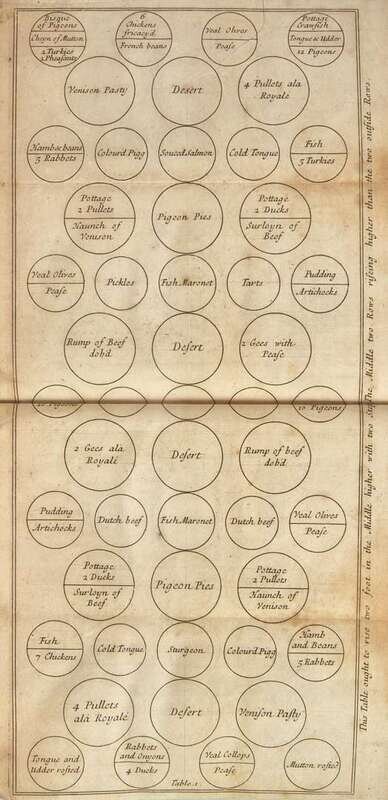 Bisque
of Pigeons
Chyn of Mutton
2 Turkies
2 Pheasants
6
Chickens
fricacy'd
French beans
Veal Olives
Pease
Pottage
Crawfish
Tongue & Udder
12 Pigeons
Venison Pasty
Desert
4 Pullets ala
Royale
Hamb & beans
5 Rabbets
Colourd Pigg
Souced Salmon
Cold Tongue
Fish
3 Turkies
Pottage
2 Pullets
Haunch of
Venison
Pigeon Pies
Pottage
2 Ducks
Surloyn of
Beef
Veal Olives
Pease
Pickles
Fish Maronet
Tarts
Pudding
Artichocks
Rump of Beef
dobd
Desert
2 Gees with
Pease
10 Pigeons
10 Pigeons
2 Gees ala
Royale
Desert
Rump of beef
dob'd
Pudding
Artichocks
Dutch beef
Fish Maronet
Dutch beef
Veal Olives
Pease
Pottage
2 Ducks
Surloyn of
Beef
Pigeon Pies
Pottage
2 Pullets
Haunch of
Venison
Fish
7 Chickens
Cold Tongue
Sturgeon
Colourd Pigg
Hamb
and Beans
5 Rabbets
4 Pullets
ala Royale
Desert
Venison Pasty
Tongue and
Udder rosted
Rabbets
and Onyons
4 Ducks
Veal Collops
Pease
Mutton rosted
Table 1
This Table ought to rise two foot in the Middle higher with two The Middle two Rows riseing higher than the two outside Rows